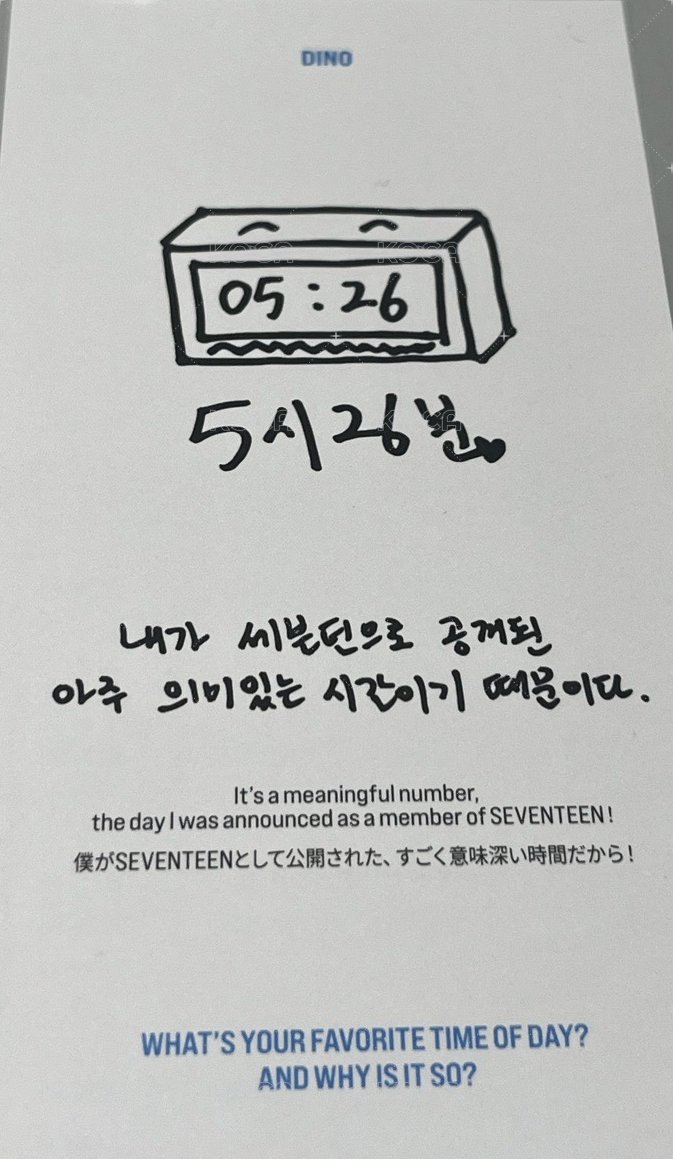 DINO
05:26
5시 26분
내가 세븐틴으로 공개된
아주 의미있는 시간이기 때문이다.
It's a meaningful number,
the day I was announced as a member of SEVENTEEN!
僕がSEVENTEENとして公開された、すごく意味深い時間だから!
WHAT'S YOUR FAVORITE TIME OF DAY?
AND WHY IS IT SO?